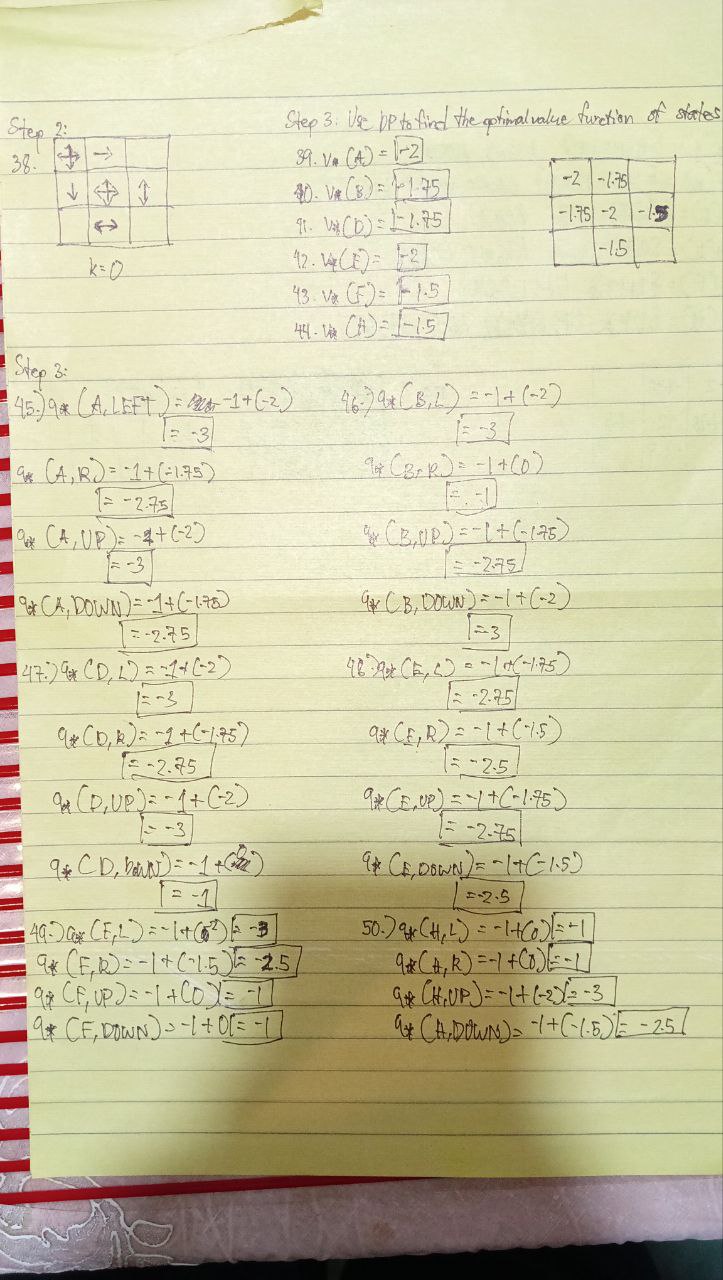 Step 2:
38.
k=0
Step 3: Use DP to find the optimal value function of states
39. V* (A) = -2
40. V* (B) = -1.75
41. V* (D) = -1.75
42. V* (E) = -2
43. V* (F) = -1.5
44. V* (H) = -1.5
-2 -1.75
-1.75 -2 -1.5
-1.5
Step 3:
45.) q* (A, LEFT) = -1+(-2)
= -3
q* (A, R) = -1+(-1.75)
= -2.75
q* (A, UP) = -1+(-2)
= -3
q* (A, DOWN) = -1+(-1.75)
= -2.75
46.) q* (B, L) = -1+(-2)
= -3
q* (B, R) = -1+(0)
= -1
q* (B, UP) = -1+(-1.75)
= -2.75
q* (B, DOWN) = -1+(-2)
=3
47.) q* (D, L) = -1+(-2)
= -3
q* (D, R) = -1+(-1.75)
= -2.75
q* (D, UP) = -1+(-2)
= -3
q* (D, DOWN) = -1+( )
= -1
48.) q* (E, L) = -1+(-1.75)
= -2.75
q* (E, R) = -1+(-1.5)
= -2.5
q* (E, UP) = -1+(-1.75)
= -2.75
q* (E, DOWN) = -1+(-1.5)
=-2.5
49.) q* (F, L) = -1+( 2) = -3
q* (F, R) = -1+(-1.5) = -2.5
q* (F, UP) = -1+(0) = -1
q* (F, DOWN) = -1+0 = -1
50.) q* (H, L) = -1+(0) = -1
q* (H, R) = -1+(0) = -1
q* (H, UP) = -1+(-2) = -3
q* (H, DOWN) = -1+(-1.5) = -2.5